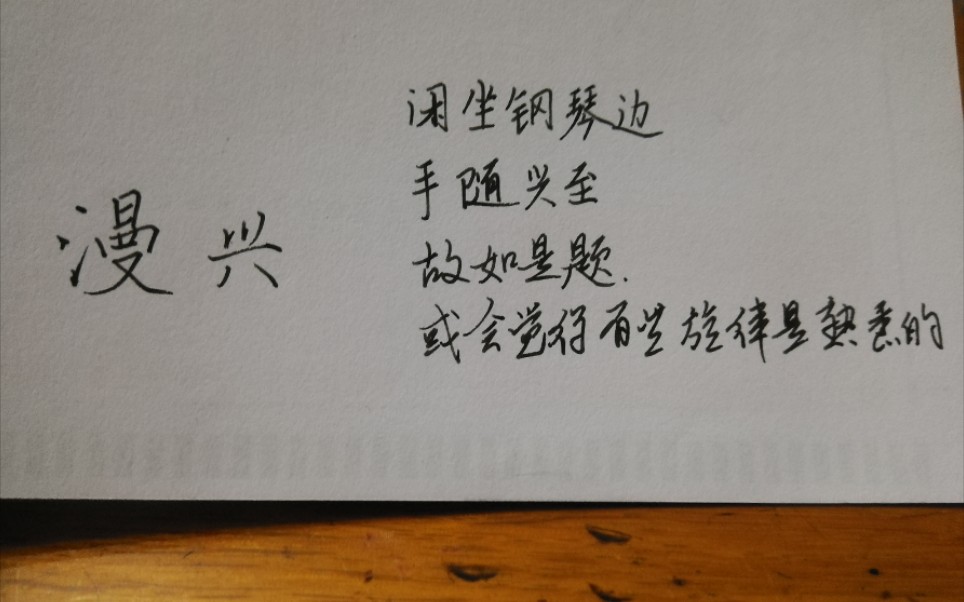 漫兴
闲坐钢琴边
手随兴至
故如是题.
或会觉得有些旋律是熟悉的